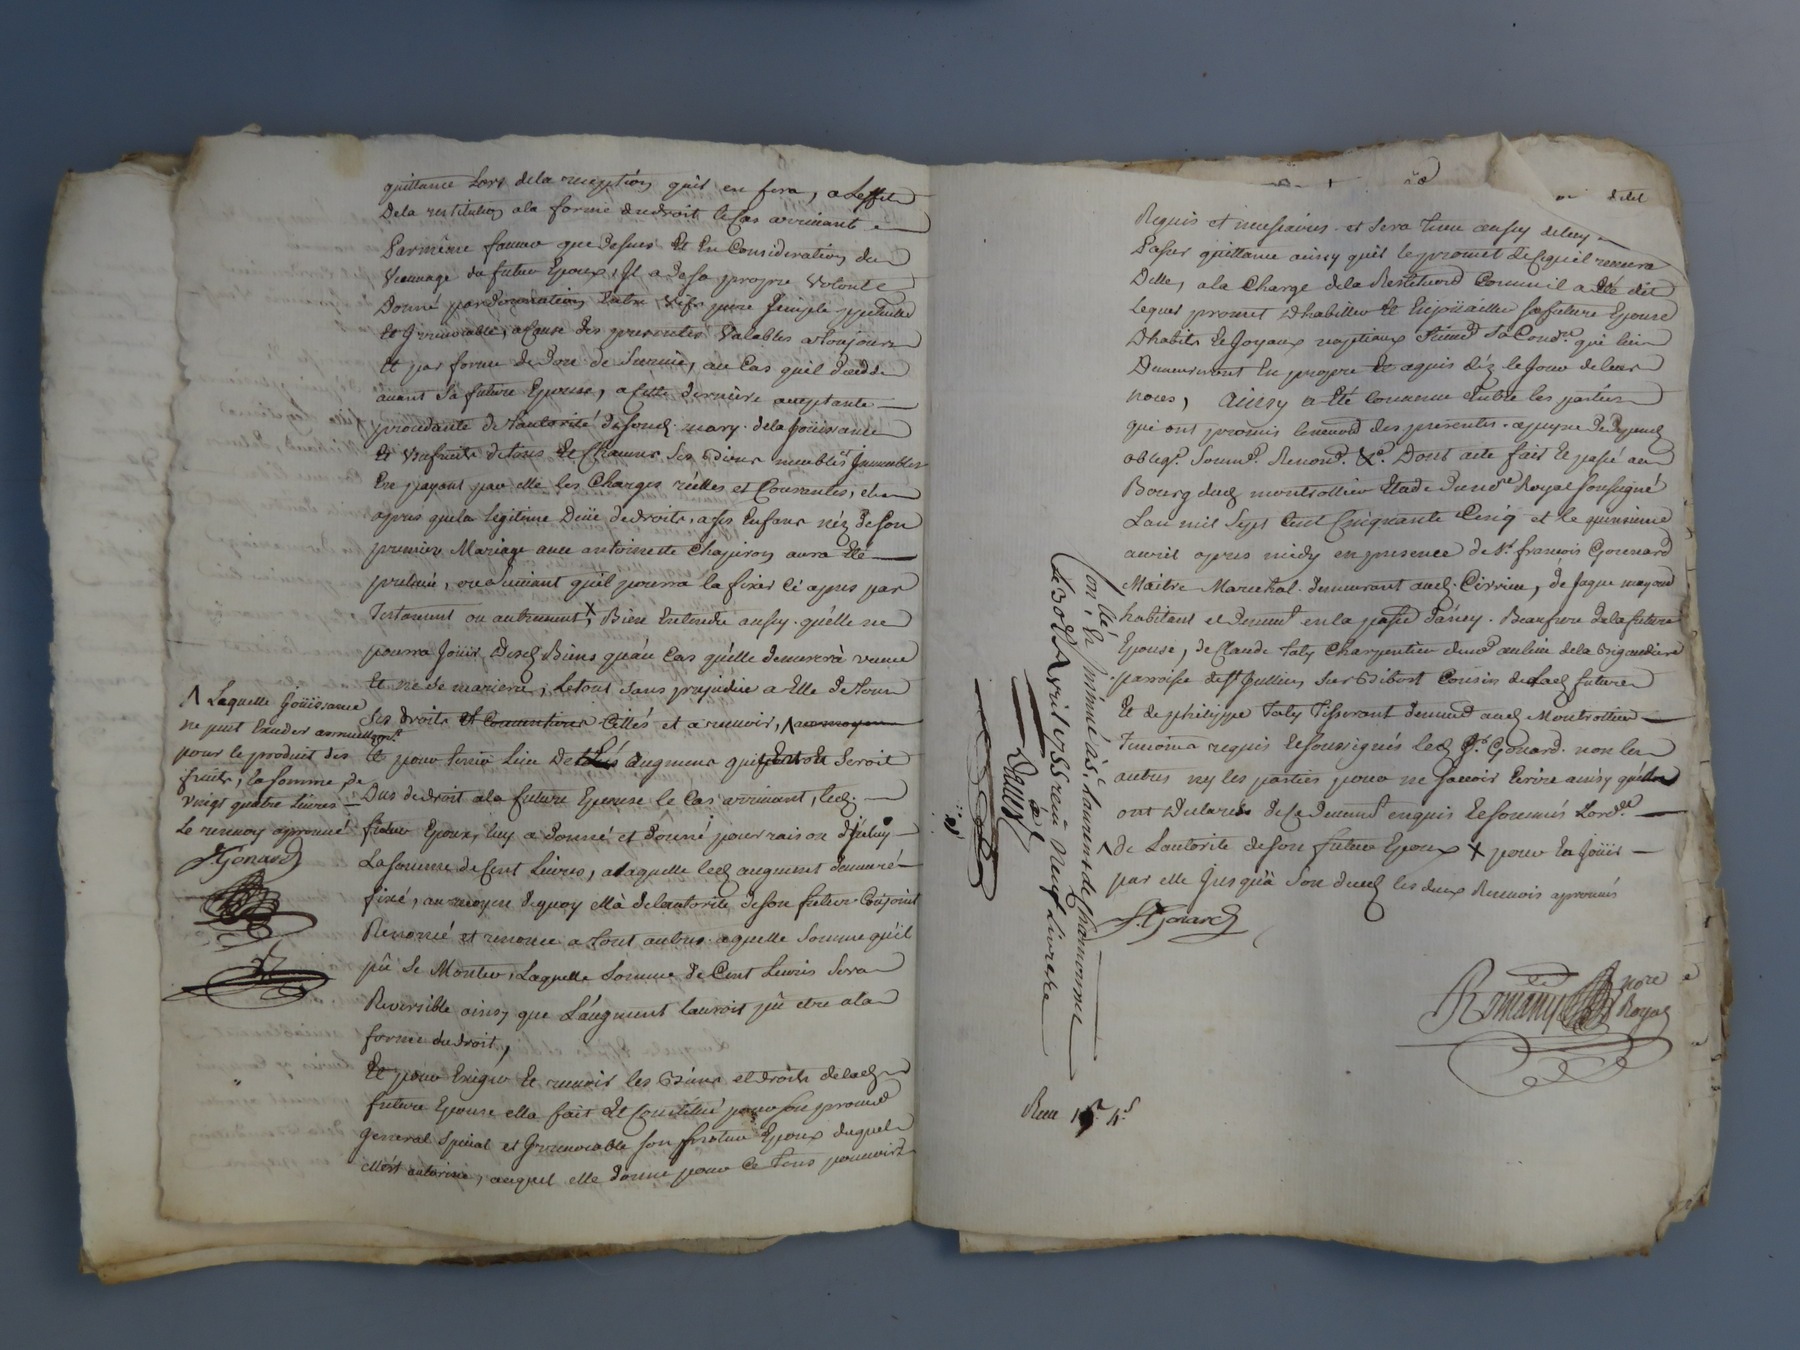 quittance Lors dela reception quil en fera, a Leffet
Dela restitution ala forme dudroit le Cas arrivant
Parmême forme que Dessus Et En Consideration du
Mariage du futur Epoux, Il a Desa propre Volonté
Donné par Donnation Entre Vifs pure Simple perpetuelle
Et Irrevocable, acause des presentes Valables atoujours
Et par forme de Don de Survie, au Cas quil decedde
avant Sa future Epouse, a Cette derniere acceptante
procedante de Lautorité de Son d. mary dela Joüissance
Et Usufruit de tous Et Chacuns Ses Biens meubles et Immeubles
En payant par elle les Charges réelles et Courantes, et
apres quela legitime Düe de droits, ases Enfans néz de Son
premier Mariage avec antoinette Chapiron aura Eté
prelevée, ou Suivant quil pourra la fixer cÿ apres par
Testament ou autrement, X Bien Entendu aussy quélle ne
pourra Joüir Desd Biens quau Cas quélle demeurera veuve
Et ne se mariera, Letout Sans prejudice a Elle de tous
Ses droits Et Conventions Cédés et a recevoir, Λ au moyen
Et pour tenir Lieu De augment qui Seroit
Dus de droit ala future Epouse le Cas arrivant, led.
futur Epoux, luy a donné et donne pour raison diceluy
La Somme de Cent Livres, a laquelle led augment demeure
fixé, au moyen dequoy ella delautorité deson futur Conjoint
Renoncé et renonce a tout autre aquelle Somme quil
pût Se Monter, Laquelle Somme de Cent Livres Sera
Reversible ainsy que Laugment lauroit pû etre ala
forme du droit,
Et pour Exiger Et recevoir les Biens et droits delad
future Epouse ella fait Et Constitué pour Son procur
general Special et Irrevocable Son futur Epoux duquel
ellest autorisée, auquel elle donne pour Ce tous pouvoirs
Λ Laquelle Joüissance
ne peut Exceder annuellemt.
pour le produit des
fruits, la Somme de
vingt quatre Livres
Le renvoy approuvé
f. Gonard
Requis et necessaires et Sera tenu aussy deluy
Passer quittance ainsy quil le promet de Cequil recevra
Delle, ala Charge dela Restitution Comme il a Eté dit
Lequel promet dhabiller Et Enjoüailler Safuture Epouse
Dhabits Et Joyaux nuptiaux Suivt Sa Condon. qui luy
Demeureront En propre Et aquis déz le Jour de leurs
noces, Ainsy a Eté Convenu Entre les parties
qui ont promis lenvoid des presentes apeyne de depends
obligs. Soums. Renons. &ca. Dont acte fait Et passé au
Bourg dud montrottier Etude du nore Royal Soussigné
Lan mil Sept Cent Cinquante Cinq et Le quinsieme
avril apres midy en presence de Sr. francois Gonnard
Maitre Marechal demeurant aud. Civrieu, de Jaque mayoud
habitant et Demeurt en la psse dancy. Beaufrere dela future
Epouse, de Claude Taly Charpentier demt au lieu dela Brigandiere
parroisse de St Jullien Sur Bibost Cousin delad future
Et de philippe Taly Tisserant demeurt aud Montrottier
Temoins requis Et Soussignés led Sr. Gonard. non les
autres ny les parties pour ne Scavoir Ecrire ainsy quéls
ont Declarés de ce Deument enquis Et Sommés Lord.ce
Λ de Lautorité de son futur Epoux X pour En Joüir
par elle Jusquà Son decd les deux Renvois aprouvés
f. Gonard
Romany nore Royal
Con.lé & Insinué à St. Laurent de Chamousset
Le 30 Avril 1755 reçû Neuf Livres